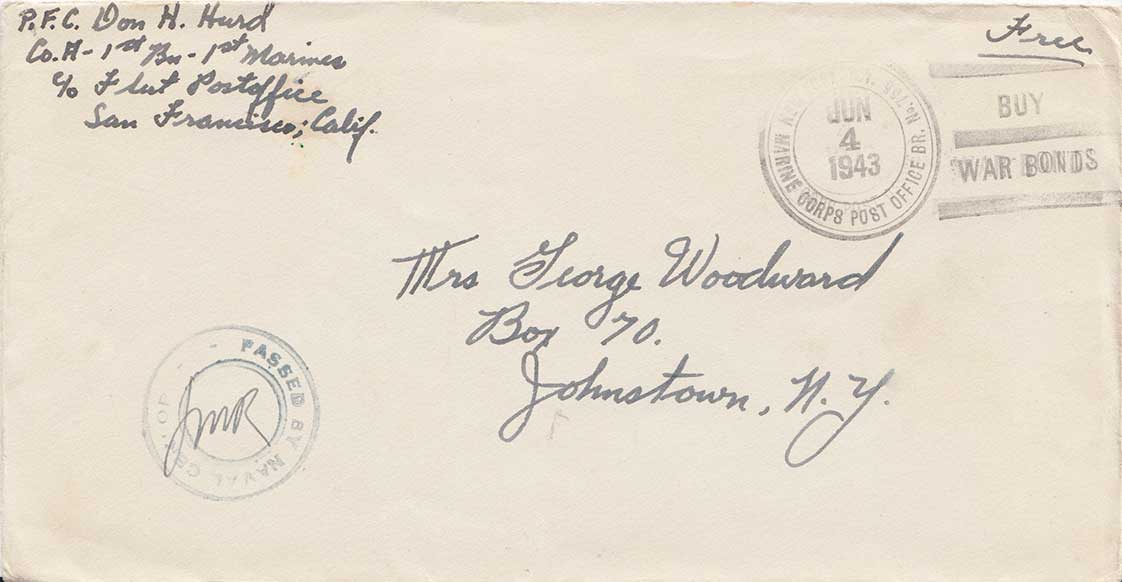 P.F.C. Don H. Hurd
Co. A - 1st Bn - 1st Marines
c/o Fleet Postoffice
San Francisco; Calif.
Free
MARINE CORPS POST OFFICE BR. No.
JUN
4
1943
BUY
WAR BONDS
Mrs George Woodward
Box 70.
Johnstown, N.Y.
PASSED BY NAVAL